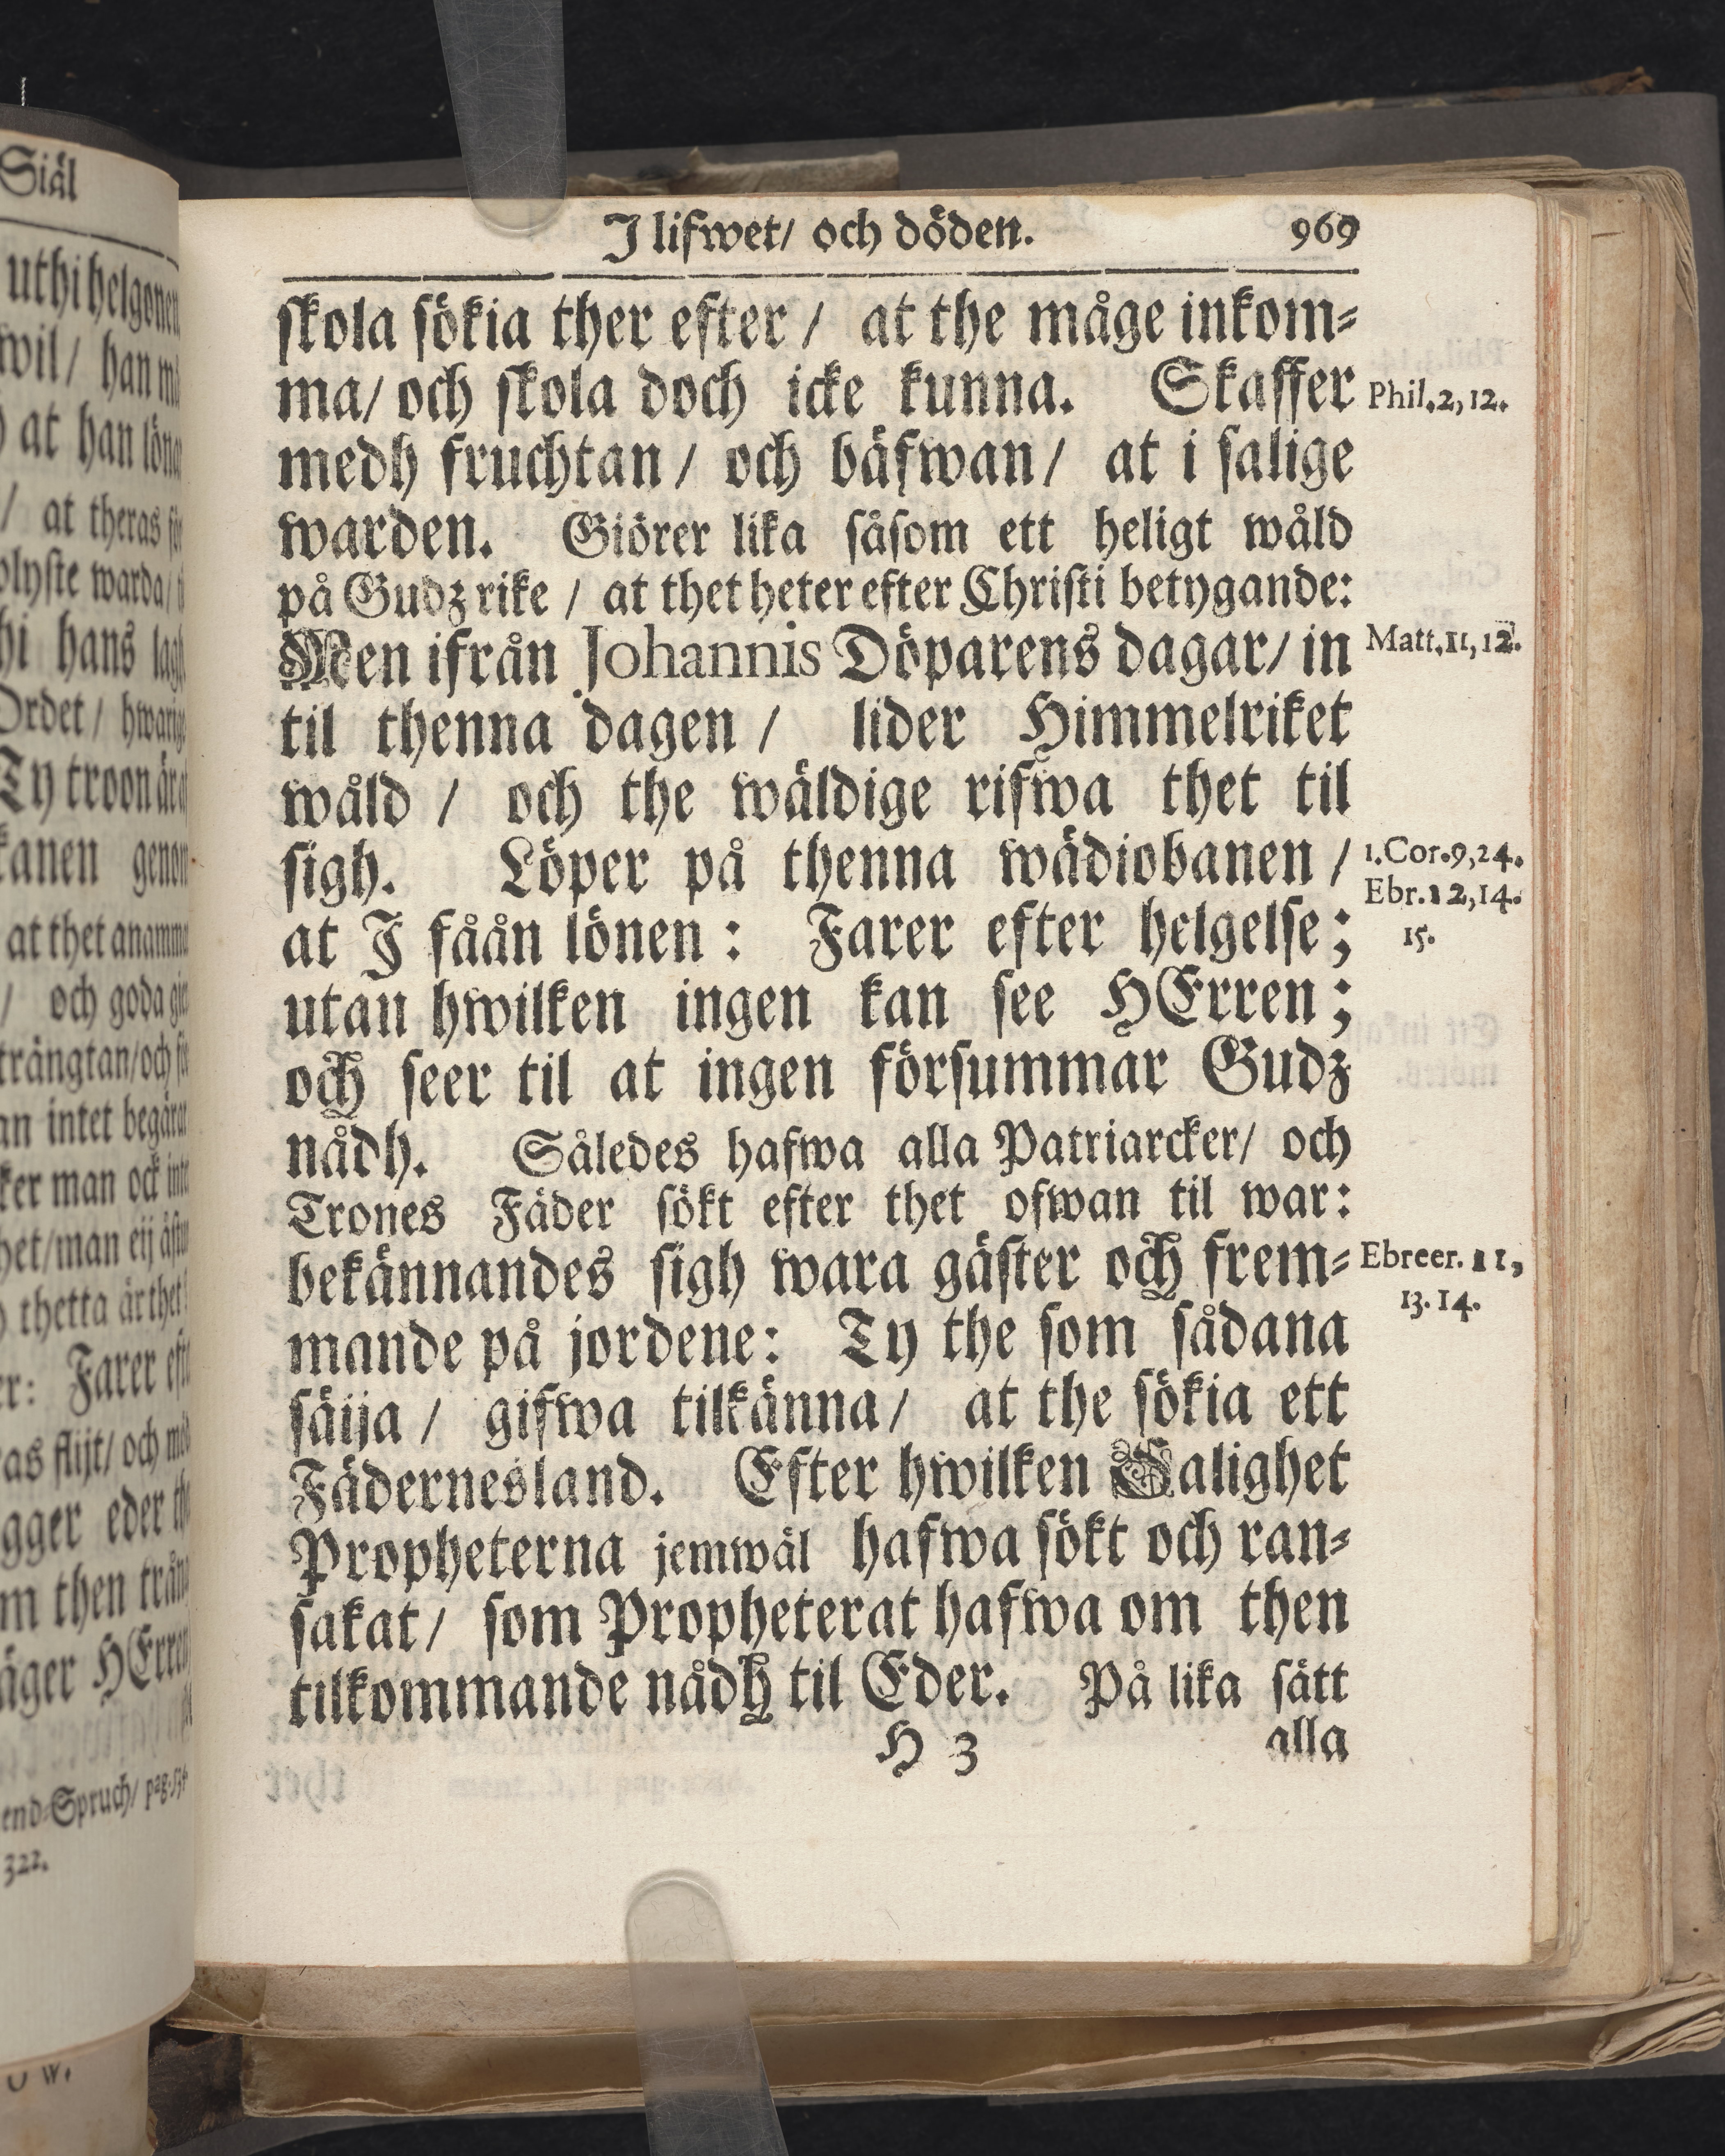 Siäl
uthi helgonen
wil / han
at han
/ at theras
warda /
hi hans
Ordet /
Ty troon är
kanen genom
at thet
/ och goda
trängtan/och
an intet
ker man ock
het/man eij
thetta är thet
er: Farer
as flijt/ och
gger eder
m then
äger HErren
end-Spruch/ pag.
322.
J lifwet/ och döden. 969
skola sökia ther efter / at the måge inkom-
ma/ och skola doch icke kunna. Skaffer Phil.2,12.
medh fruchtan / och bäfwan / at i salige
warden. Giörer lika såsom ett heligt wåld
på Gudz rike / at thet heter efter Christi betygande:
Men ifrån Johannis Döparens dagar/ in Matt.11,12.
til thenna dagen / lider Himmelriket
wåld / och the wäldige rifwa thet til
sigh. Löper på thenna wädiobanen / 1.Cor.9,24.
Ebr.12,14.
at J fåån lönen : Farer efter helgelse; 15.
utan hwilken ingen kan see HErren;
och seer til at ingen försummar Gudz
nådh. Således hafwa alla Patriarcker/ och
Trones Fäder sökt efter thet ofwan til war:
bekännandes sigh wara gäster och frem- Ebreer.11,
13.14.
mande på jordene: Ty the som sådana
säija / gifwa tilkänna / at the sökia ett
Fädernesland. Efter hwilken Salighet
Propheterna jemwäl hafwa sökt och ran-
sakat / som Propheterat hafwa om then
tilkommande nådh til Eder. På lika sätt
H 3 alla